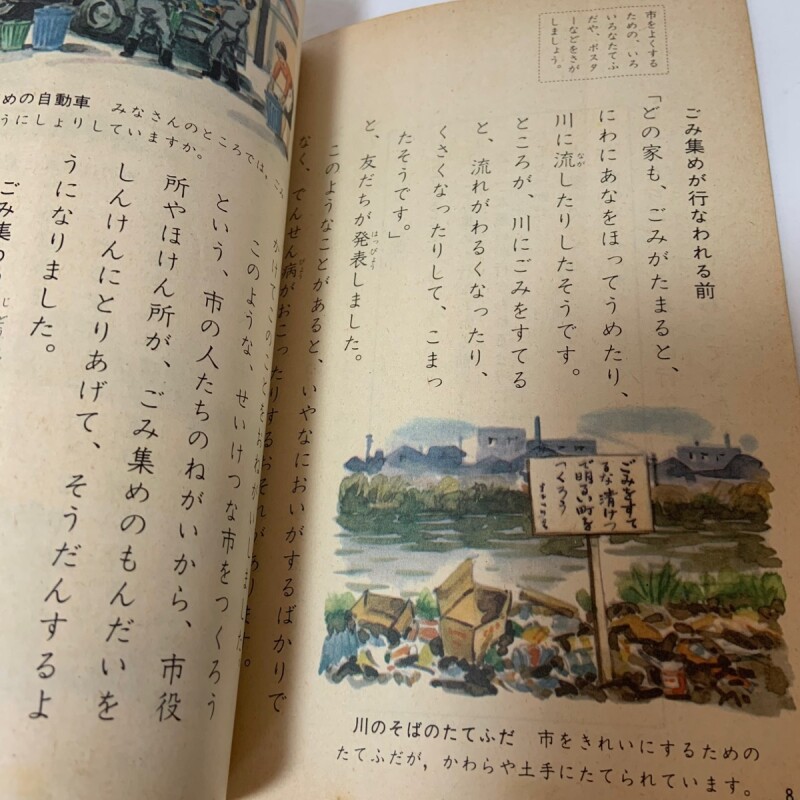 市をよくする
ための、いろ
いろなたてふ
だや、ポスタ
ーなどをさが
しましょう。
ごみ集めが行なわれる前
「どの家も、ごみがたまると、
にわにあなをほってうめたり、
川に流したりしたそうです。
ところが、川にごみをすてる
と、流れがわるくなったり、
くさくなったりして、こまっ
たそうです。」
と、友だちが発表しました。
このようなことがあると、いやなにおいがするばかりで
なく、でんせん病がおこったりするおそれがあります。
ごみをすて
るな 清けつ
で明るい町を
つくろう
川のそばのたてふだ　市をきれいにするための
たてふだが，かわらや土手にたてられています。
8
このような、せいけつな市をつくろう
という、市の人たちのねがいから、市役
所やほけん所が、ごみ集めのもんだいを
しんけんにとりあげて、そうだんするよ
うになりました。
ごみ集め
めの自動車　みなさんのところでは，ごみ
うにしょりしていますか。